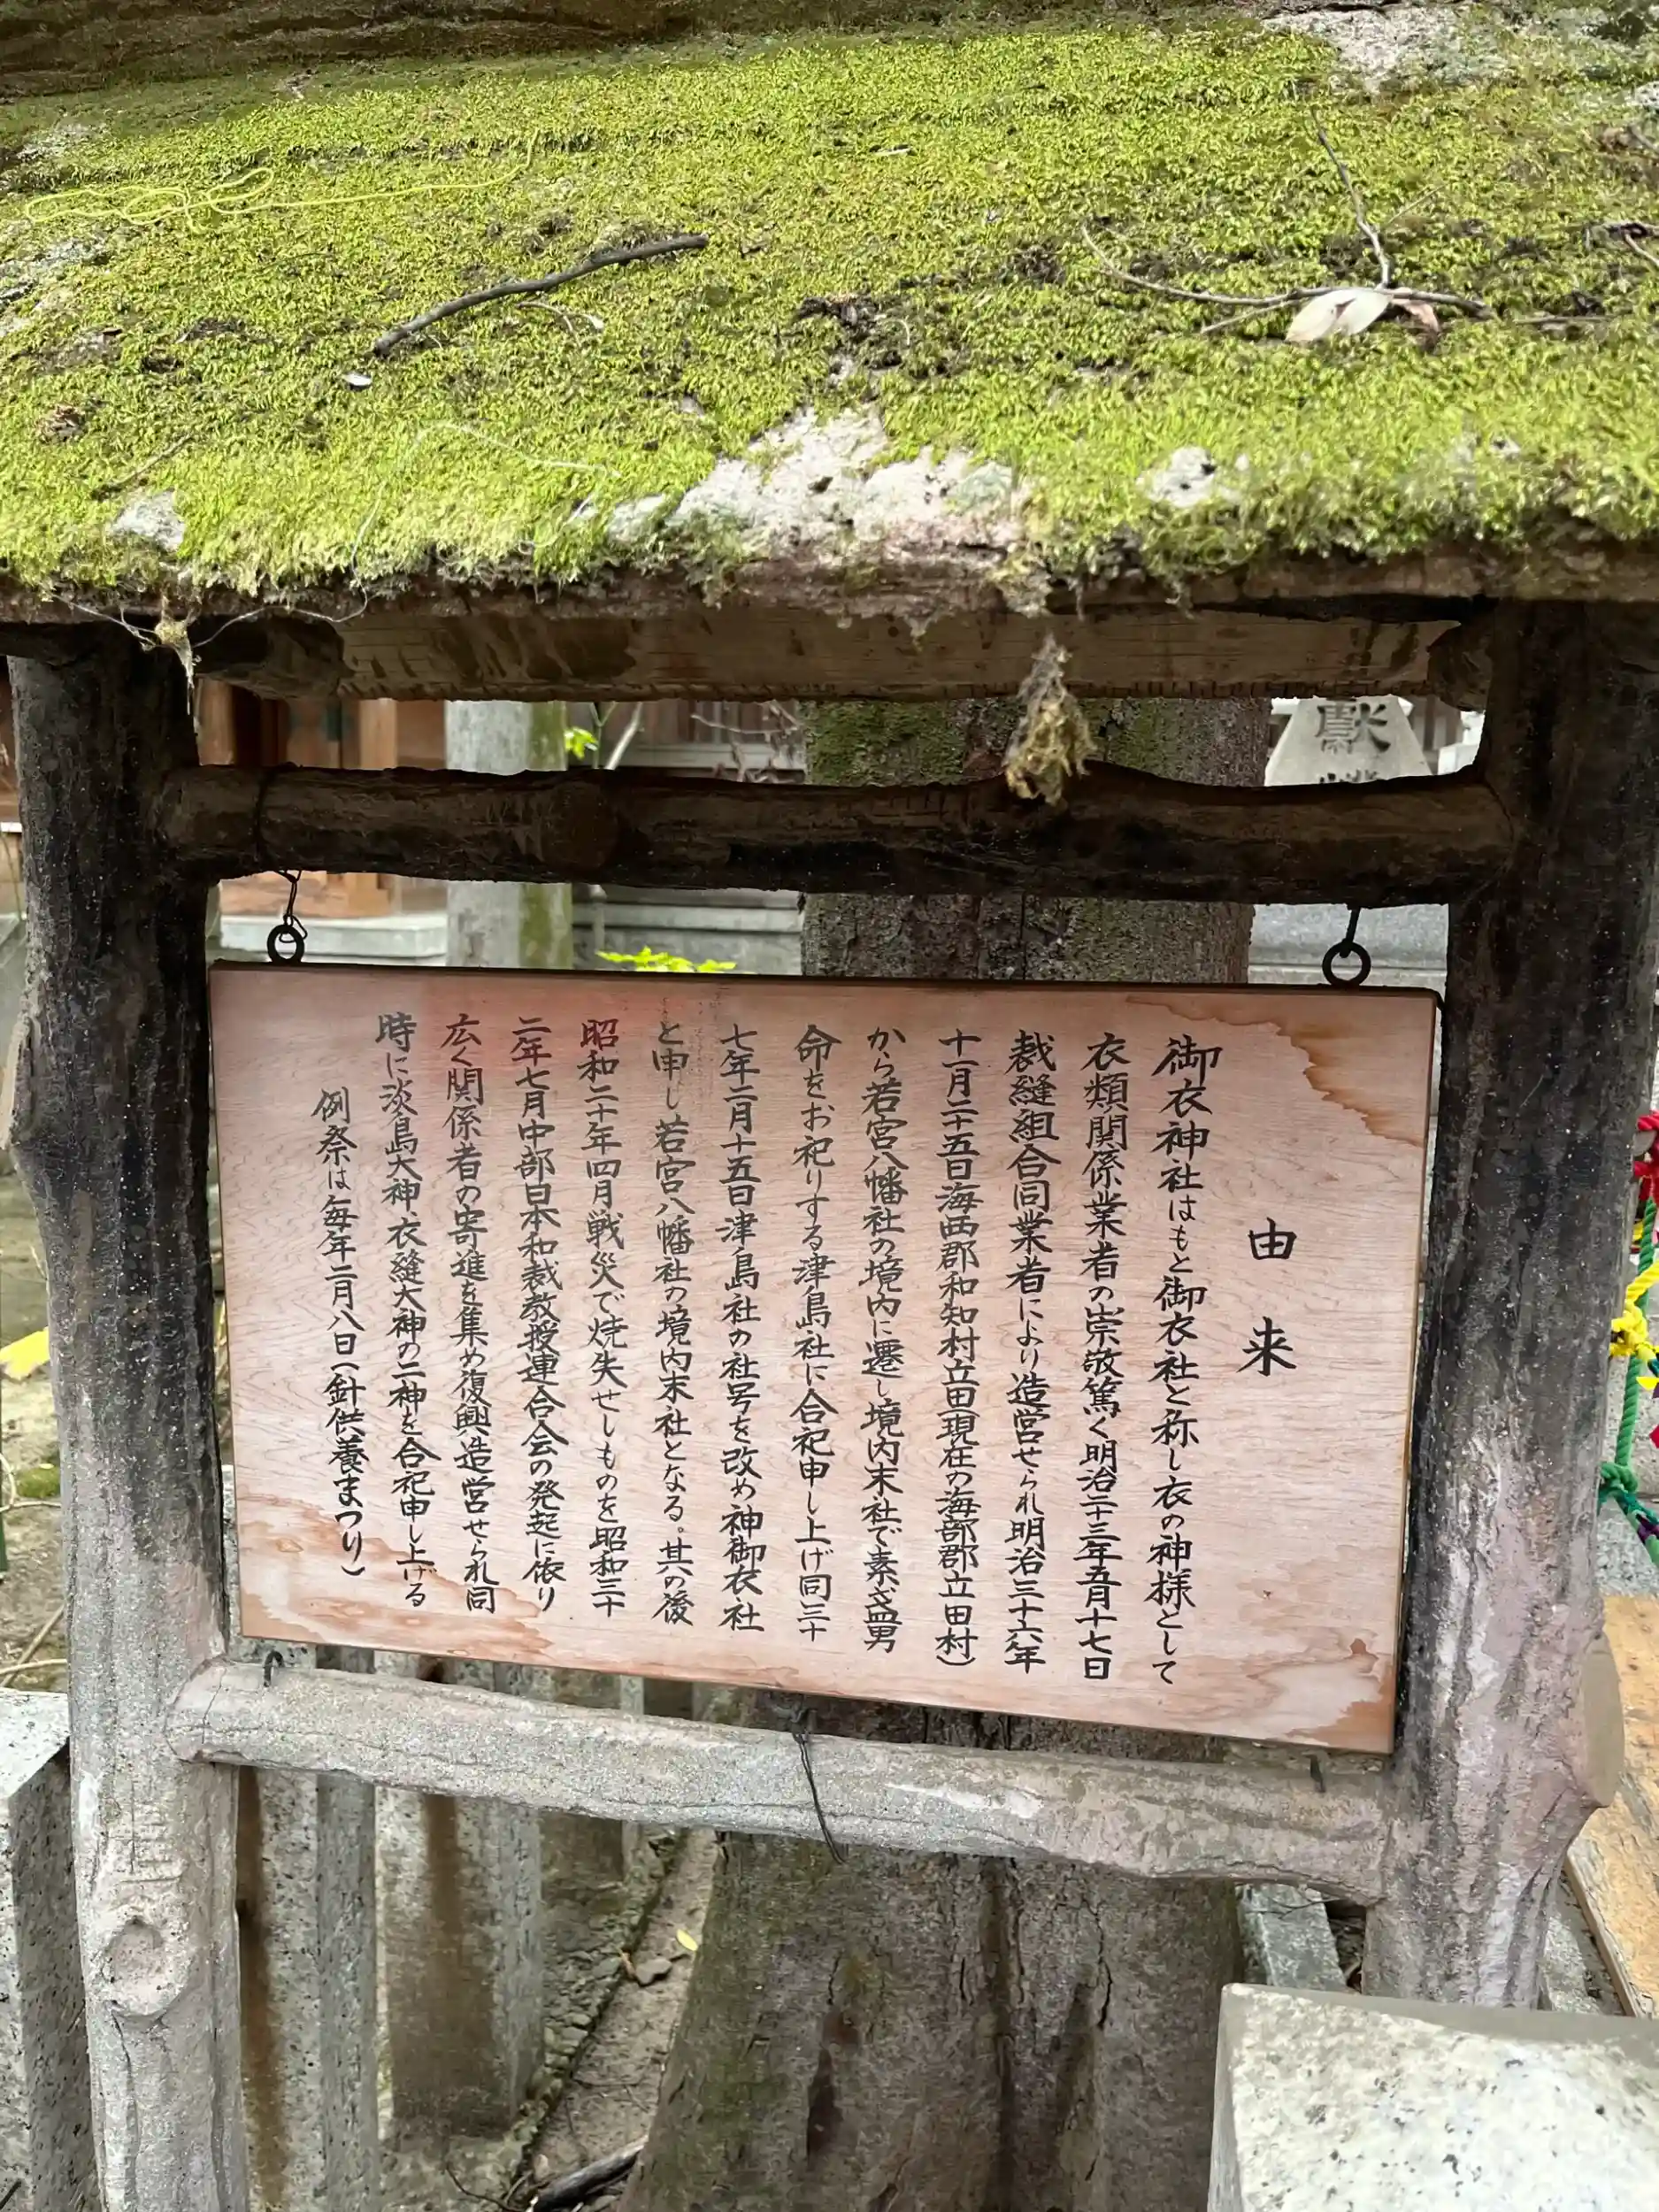 由来
御衣神社はもと御衣社と称し衣の神様として
衣類関係業者の崇敬篤く明治二十三年五月十七日
裁縫組合同業者により造営せられ明治三十六年
十一月二十五日海西郡和知村立田現在の海部郡立田村)
から若宮八幡社の境内に遷し境内末社で素盞男
命をお祀りする津島社に合祀申し上げ同三十
七年二月十五日津島社の社号を改め神御衣社
と申し若宮八幡社の境内末社となる。其の後
昭和二十年四月戦災で焼失せしものを昭和三十
二年七月中部日本和裁教授連合会の発起に依り
広く関係者の寄進を集め復興造営せられ同
時に淡島大神、衣縫大神の二神を合祀申し上げる
例祭は毎年二月八日(針供養まつり)
献